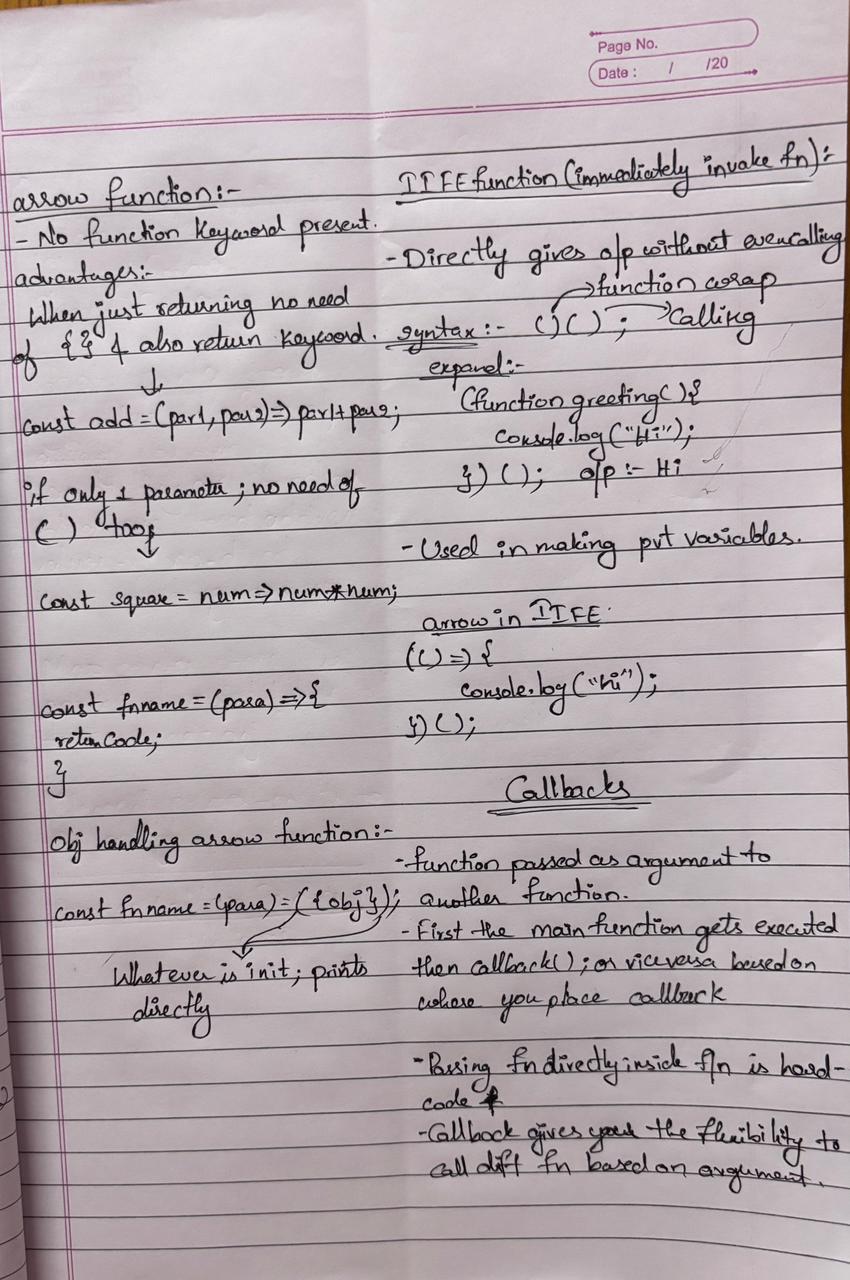 Page No.
Date : / /20
arrow function:-
- No function Keyword present.
advantages:-
When just returning no need
of {} & also return keyword.
↓
const add = (par1, par2) => par1+par2;
if only 1 parameter ; no need of
( ) too;
↓
const square = num => num*num;
const fnname = (para) => {
return code;
}
Obj handling arrow function:-
const fnname = (para) = ({obj});
Whatever is init; prints
directly
IIFE function (immediately invoke fn):-
- Directly gives o/p without even calling
→ function wrap
syntax :- ( ) ( ) ; → Calling
expand:-
(function greeting( ) {
console.log("Hi");
}) ( ); o/p :- Hi
- Used in making pvt variables.
arrow in IIFE
(( ) => {
console.log("hi");
}) ( );
Callbacks
- function passed as argument to
another function.
- First the main function gets executed
then callback( ); or viceversa based on
where you place callback
- Passing fn directly inside f/n is hard-
code
- Callback gives you the flexibility to
call diff fn based on argument.